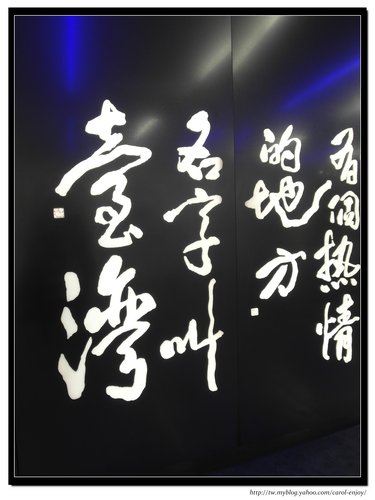 有個热情
的地方
名字叫
臺灣
http://tw.myblog.yahoo.com/carol-enjoy/